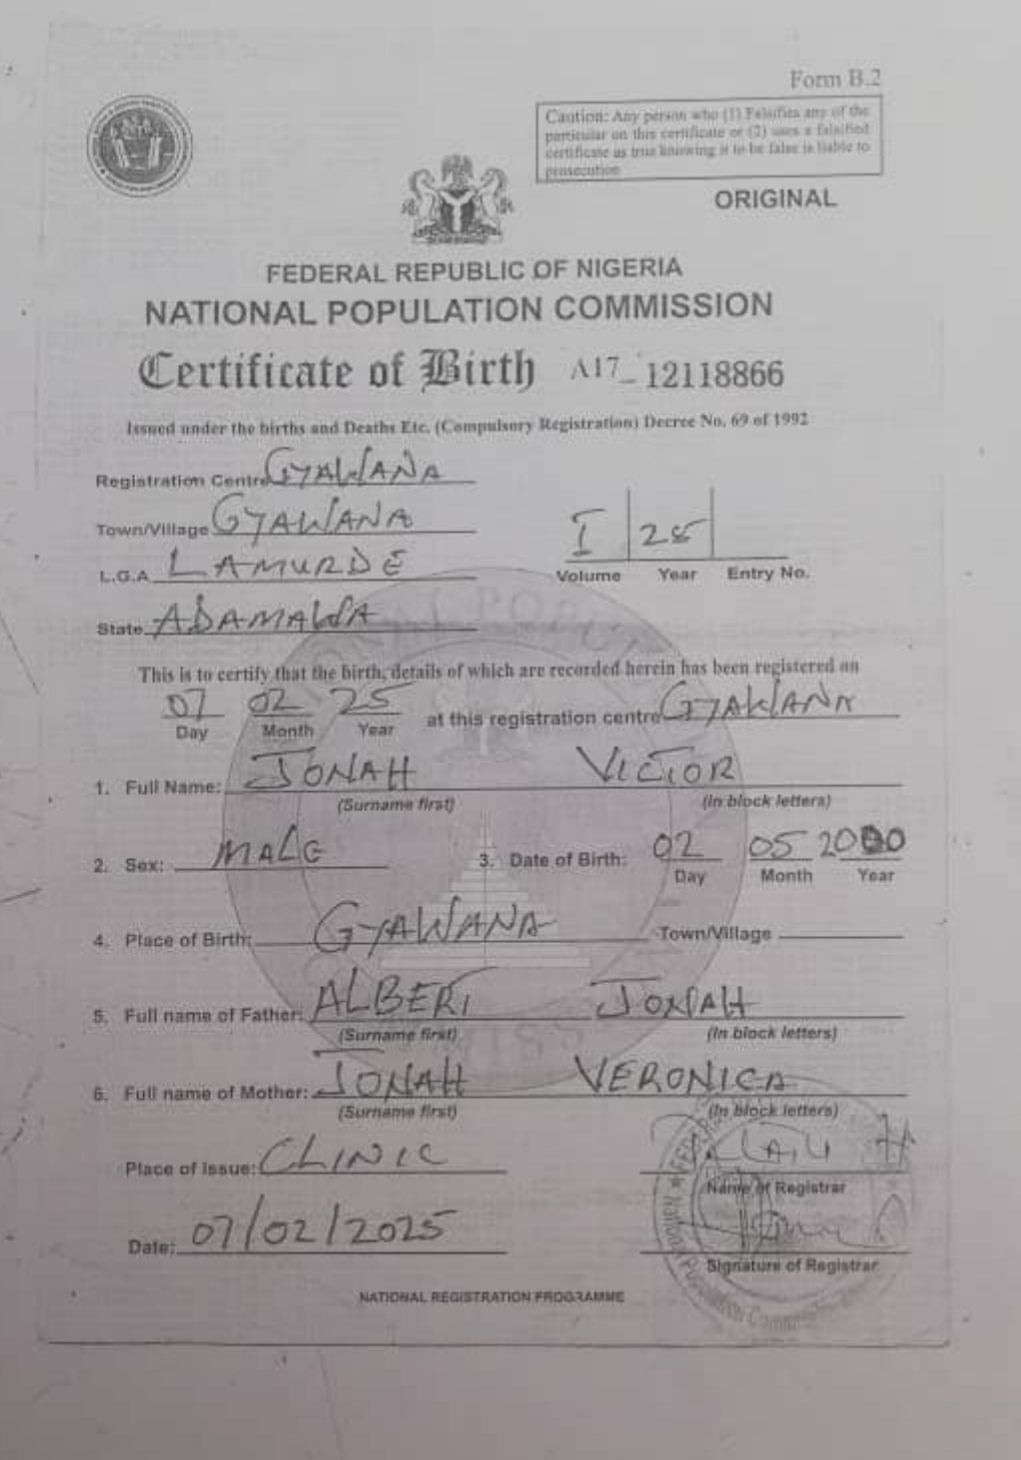 Form B.2
Caution: Any person who (1) Falsifies any of the
particular on this certificate or (2) uses a falsified
certificate as true knowing it to be false is liable to
prosecution
ORIGINAL
FEDERAL REPUBLIC OF NIGERIA
NATIONAL POPULATION COMMISSION
Certificate of Birth A17_ 12118866
Issued under the births and Deaths Etc. (Compulsory Registration) Decree No. 69 of 1992
Registration Centre GYAWANA
Town/Village GYAWANA
L.G.A LAMURDE
State ADAMAWA
I 25
Volume Year Entry No.
This is to certify that the birth, details of which are recorded herein has been registered on
07 02 25 at this registration centre GYAWANA
Day Month Year
1. Full Name: JONAH VICTOR
(Surname first) (In block letters)
2. Sex: MALE 3. Date of Birth: 02 05 2000
Day Month Year
4. Place of Birth: GYAWANA Town/Village
5. Full name of Father: ALBERT JONAH
(Surname first) (In block letters)
6. Full name of Mother: JONAH VERONICA
(Surname first) (In block letters)
Place of Issue: CLINIC
Name of Registrar
Date: 07/02/2025
Signature of Registrar
NATIONAL REGISTRATION PROGRAMME